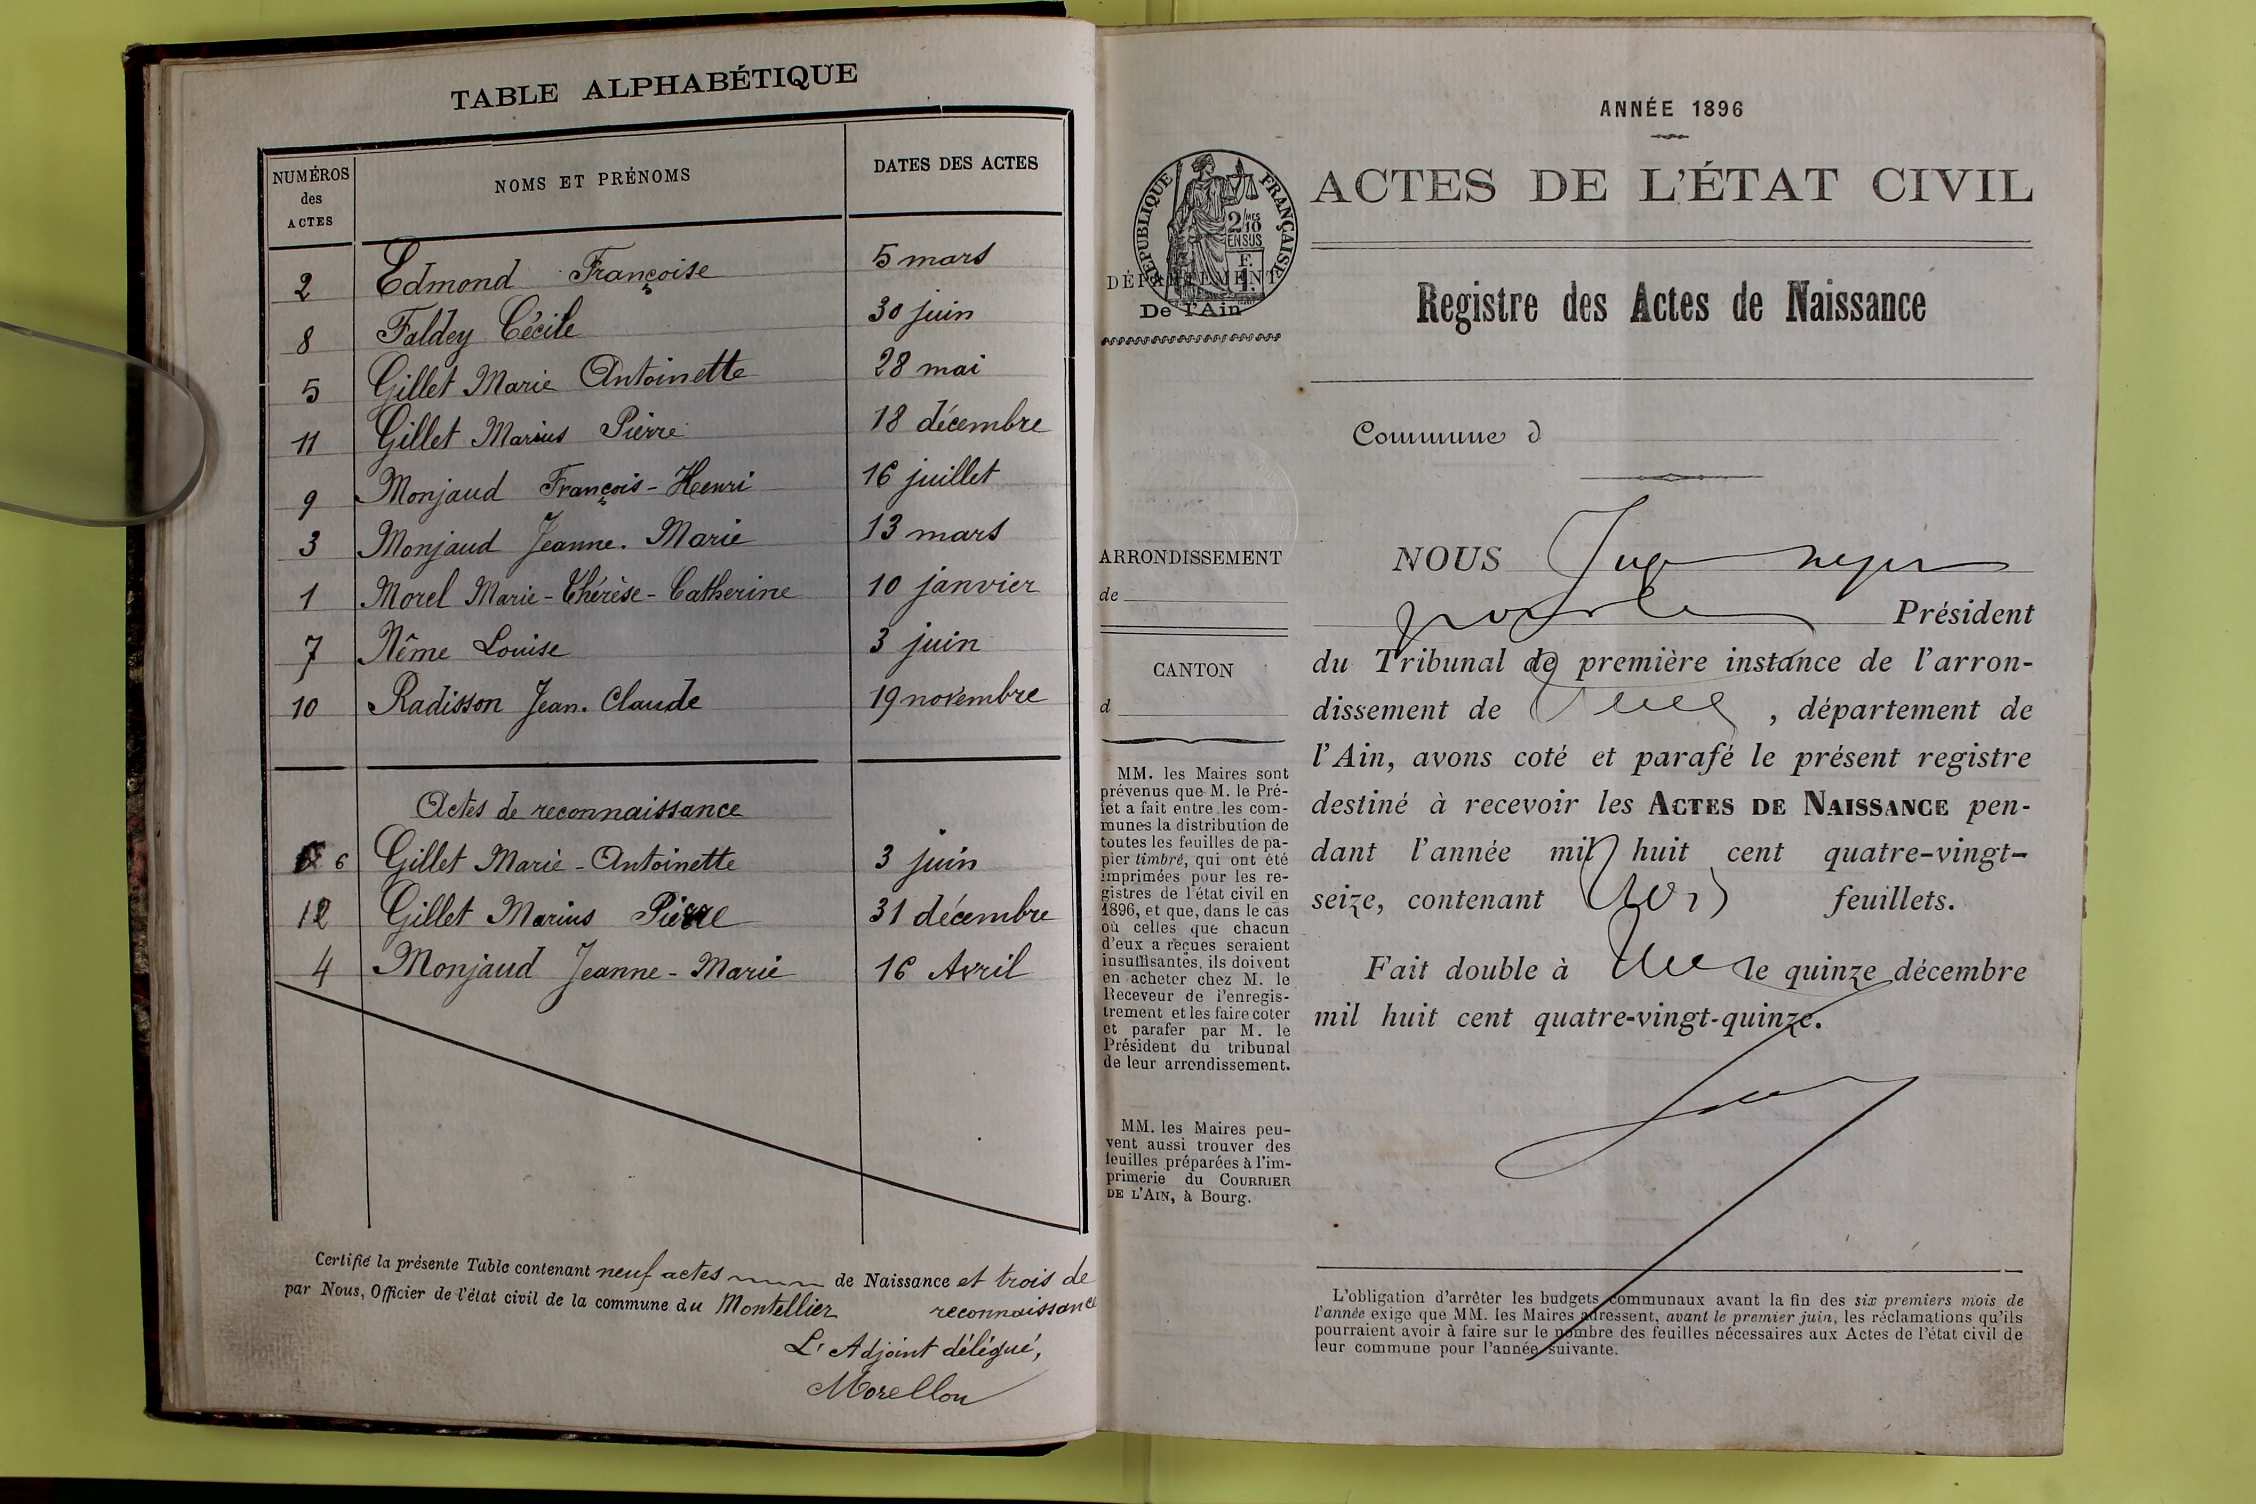 TABLE ALPHABÉTIQUE
NUMÉROS des ACTES NOMS ET PRÉNOMS DATES DES ACTES
2 Edmond Françoise 5 mars
8 Faldey Cécile 30 juin
5 Gillet Marie Antoinette 28 mai
11 Gillet Marius Pierre 18 décembre
9 Monjaud François-Henri 16 juillet
3 Monjaud Jeanne. Marie 13 mars
1 Morel Marie-Thérèse-Catherine 10 janvier
7 Nême Louise 3 juin
10 Radisson Jean. Claude 19 novembre
Actes de reconnaissance
6 Gillet Marie-Antoinette 3 juin
12 Gillet Marius Pierre 31 décembre
4 Monjaud Jeanne-Marie 16 Avril
Certifié la présente Table contenant neuf actes de Naissance et trois de
reconnaissance
par Nous, Officier de l'état civil de la commune du Montellier
L'Adjoint délégué,
Morellon
RÉPUBLIQUE FRANÇAISE
2/10 MES
EN SUS
F.
DÉPARTEMENT
De l'Ain
ARRONDISSEMENT
de
CANTON
d
MM. les Maires sont
prévenus que M. le Pré-
fet a fait entre les com-
munes la distribution de
toutes les feuilles de pa-
pier timbré, qui ont été
imprimées pour les re-
gistres de l'état civil en
1896, et que, dans le cas
où celles que chacun
d'eux a reçues seraient
insuffisantes, ils doivent
en acheter chez M. le
Receveur de l'enregis-
trement et les faire coter
et parafer par M. le
Président du tribunal
de leur arrondissement.
MM. les Maires peu-
vent aussi trouver des
feuilles préparées à l'im-
primerie du COURRIER
DE L'AIN, à Bourg.
ANNÉE 1896
ACTES DE L'ÉTAT CIVIL
Registre des Actes de Naissance
Commune d
NOUS
Président
du Tribunal de première instance de l'arron-
dissement de , département de
l'Ain, avons coté et parafé le présent registre
destiné à recevoir les ACTES DE NAISSANCE pen-
dant l'année mil huit cent quatre-vingt-
seize, contenant trois feuillets.
Fait double à le quinze décembre
mil huit cent quatre-vingt-quinze.
L'obligation d'arrêter les budgets communaux avant la fin des six premiers mois de
l'année exige que MM. les Maires adressent, avant le premier juin, les réclamations qu'ils
pourraient avoir à faire sur le nombre des feuilles nécessaires aux Actes de l'état civil de
leur commune pour l'année suivante.